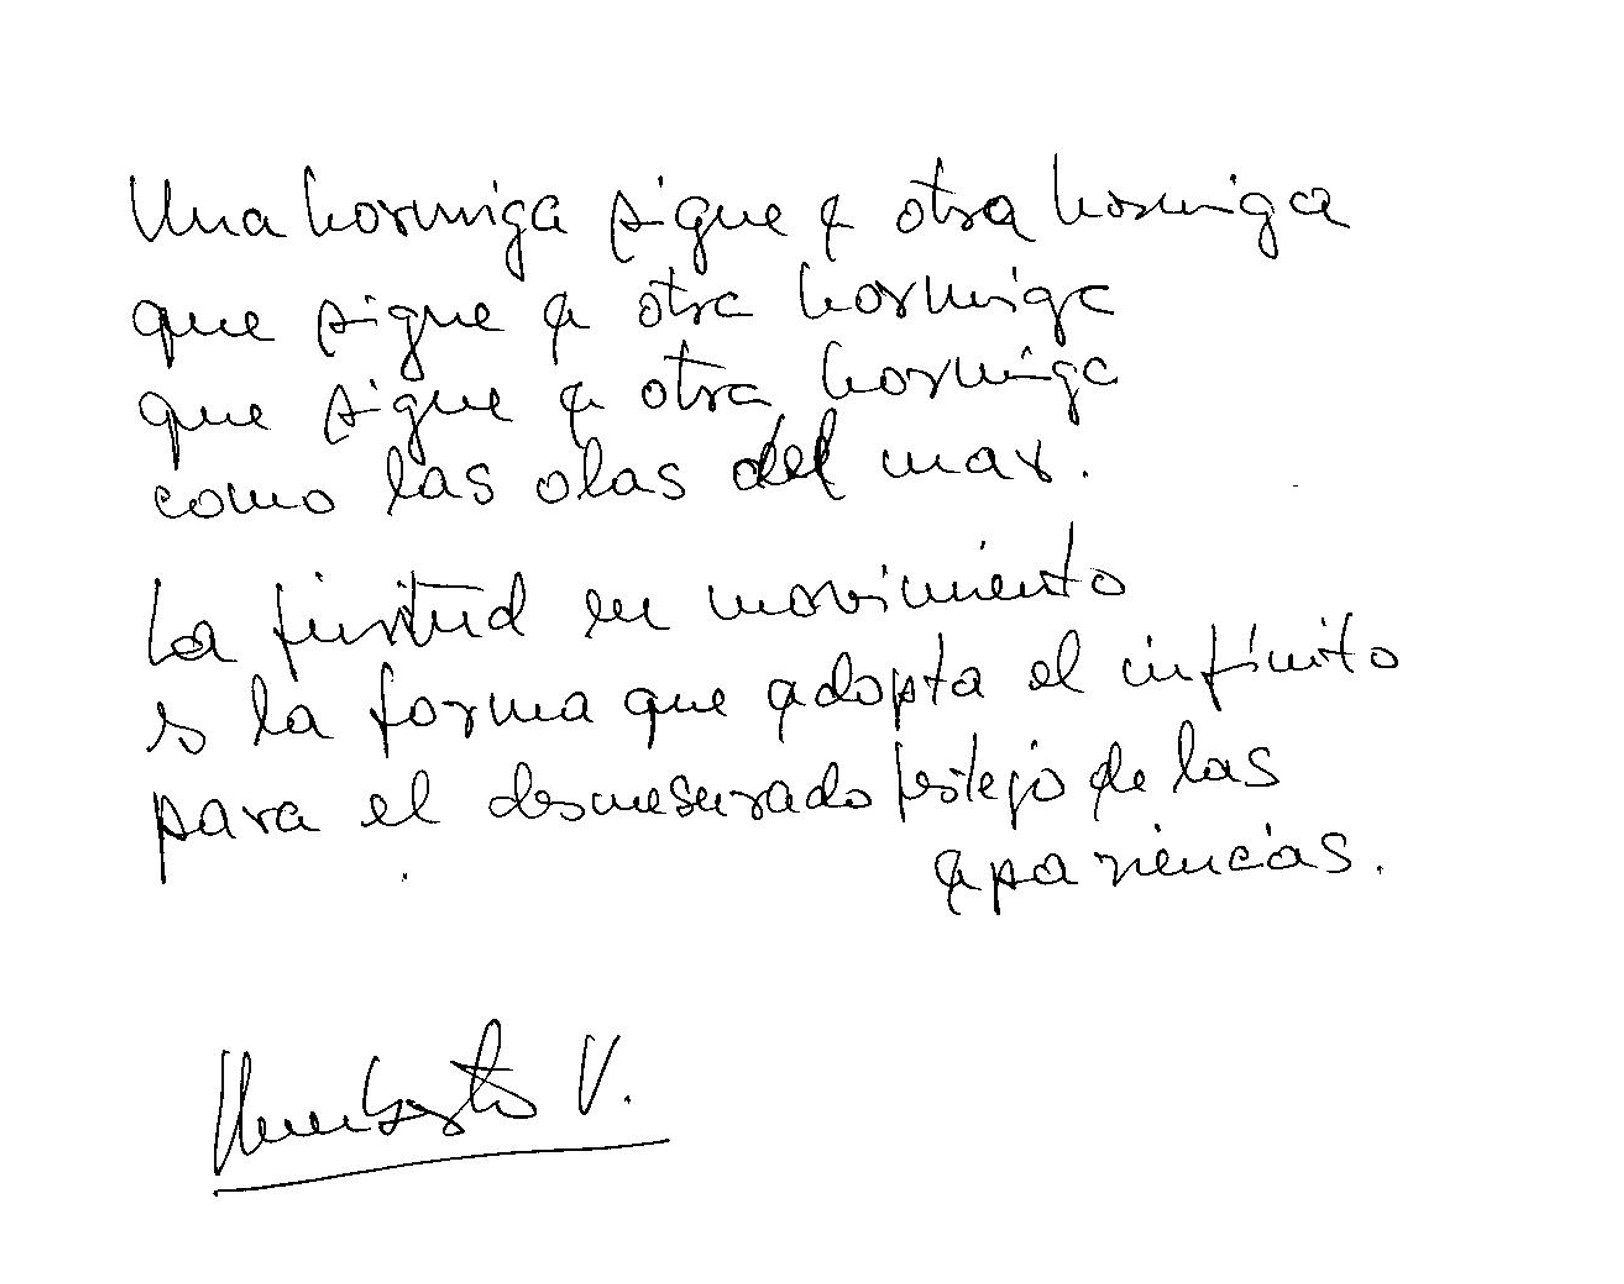 Una hormiga sigue a otra hormiga
que sigue a otra hormiga
que sigue a otra hormiga
como las olas del mar.
La finitud en movimiento
es la forma que adopta el infinito
para el desmesurado festejo de las
apariencias.
Humberto V.